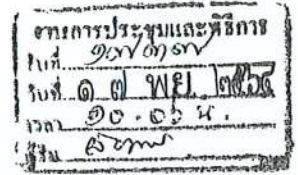 งานการประชุมและพิธีการ
รับที่ ๑๗๓๗
วันที่ ๑ ๗ พ.ย. ๒๕๖๔
เวลา ๑๐.๐๖ น.
ผู้รับ